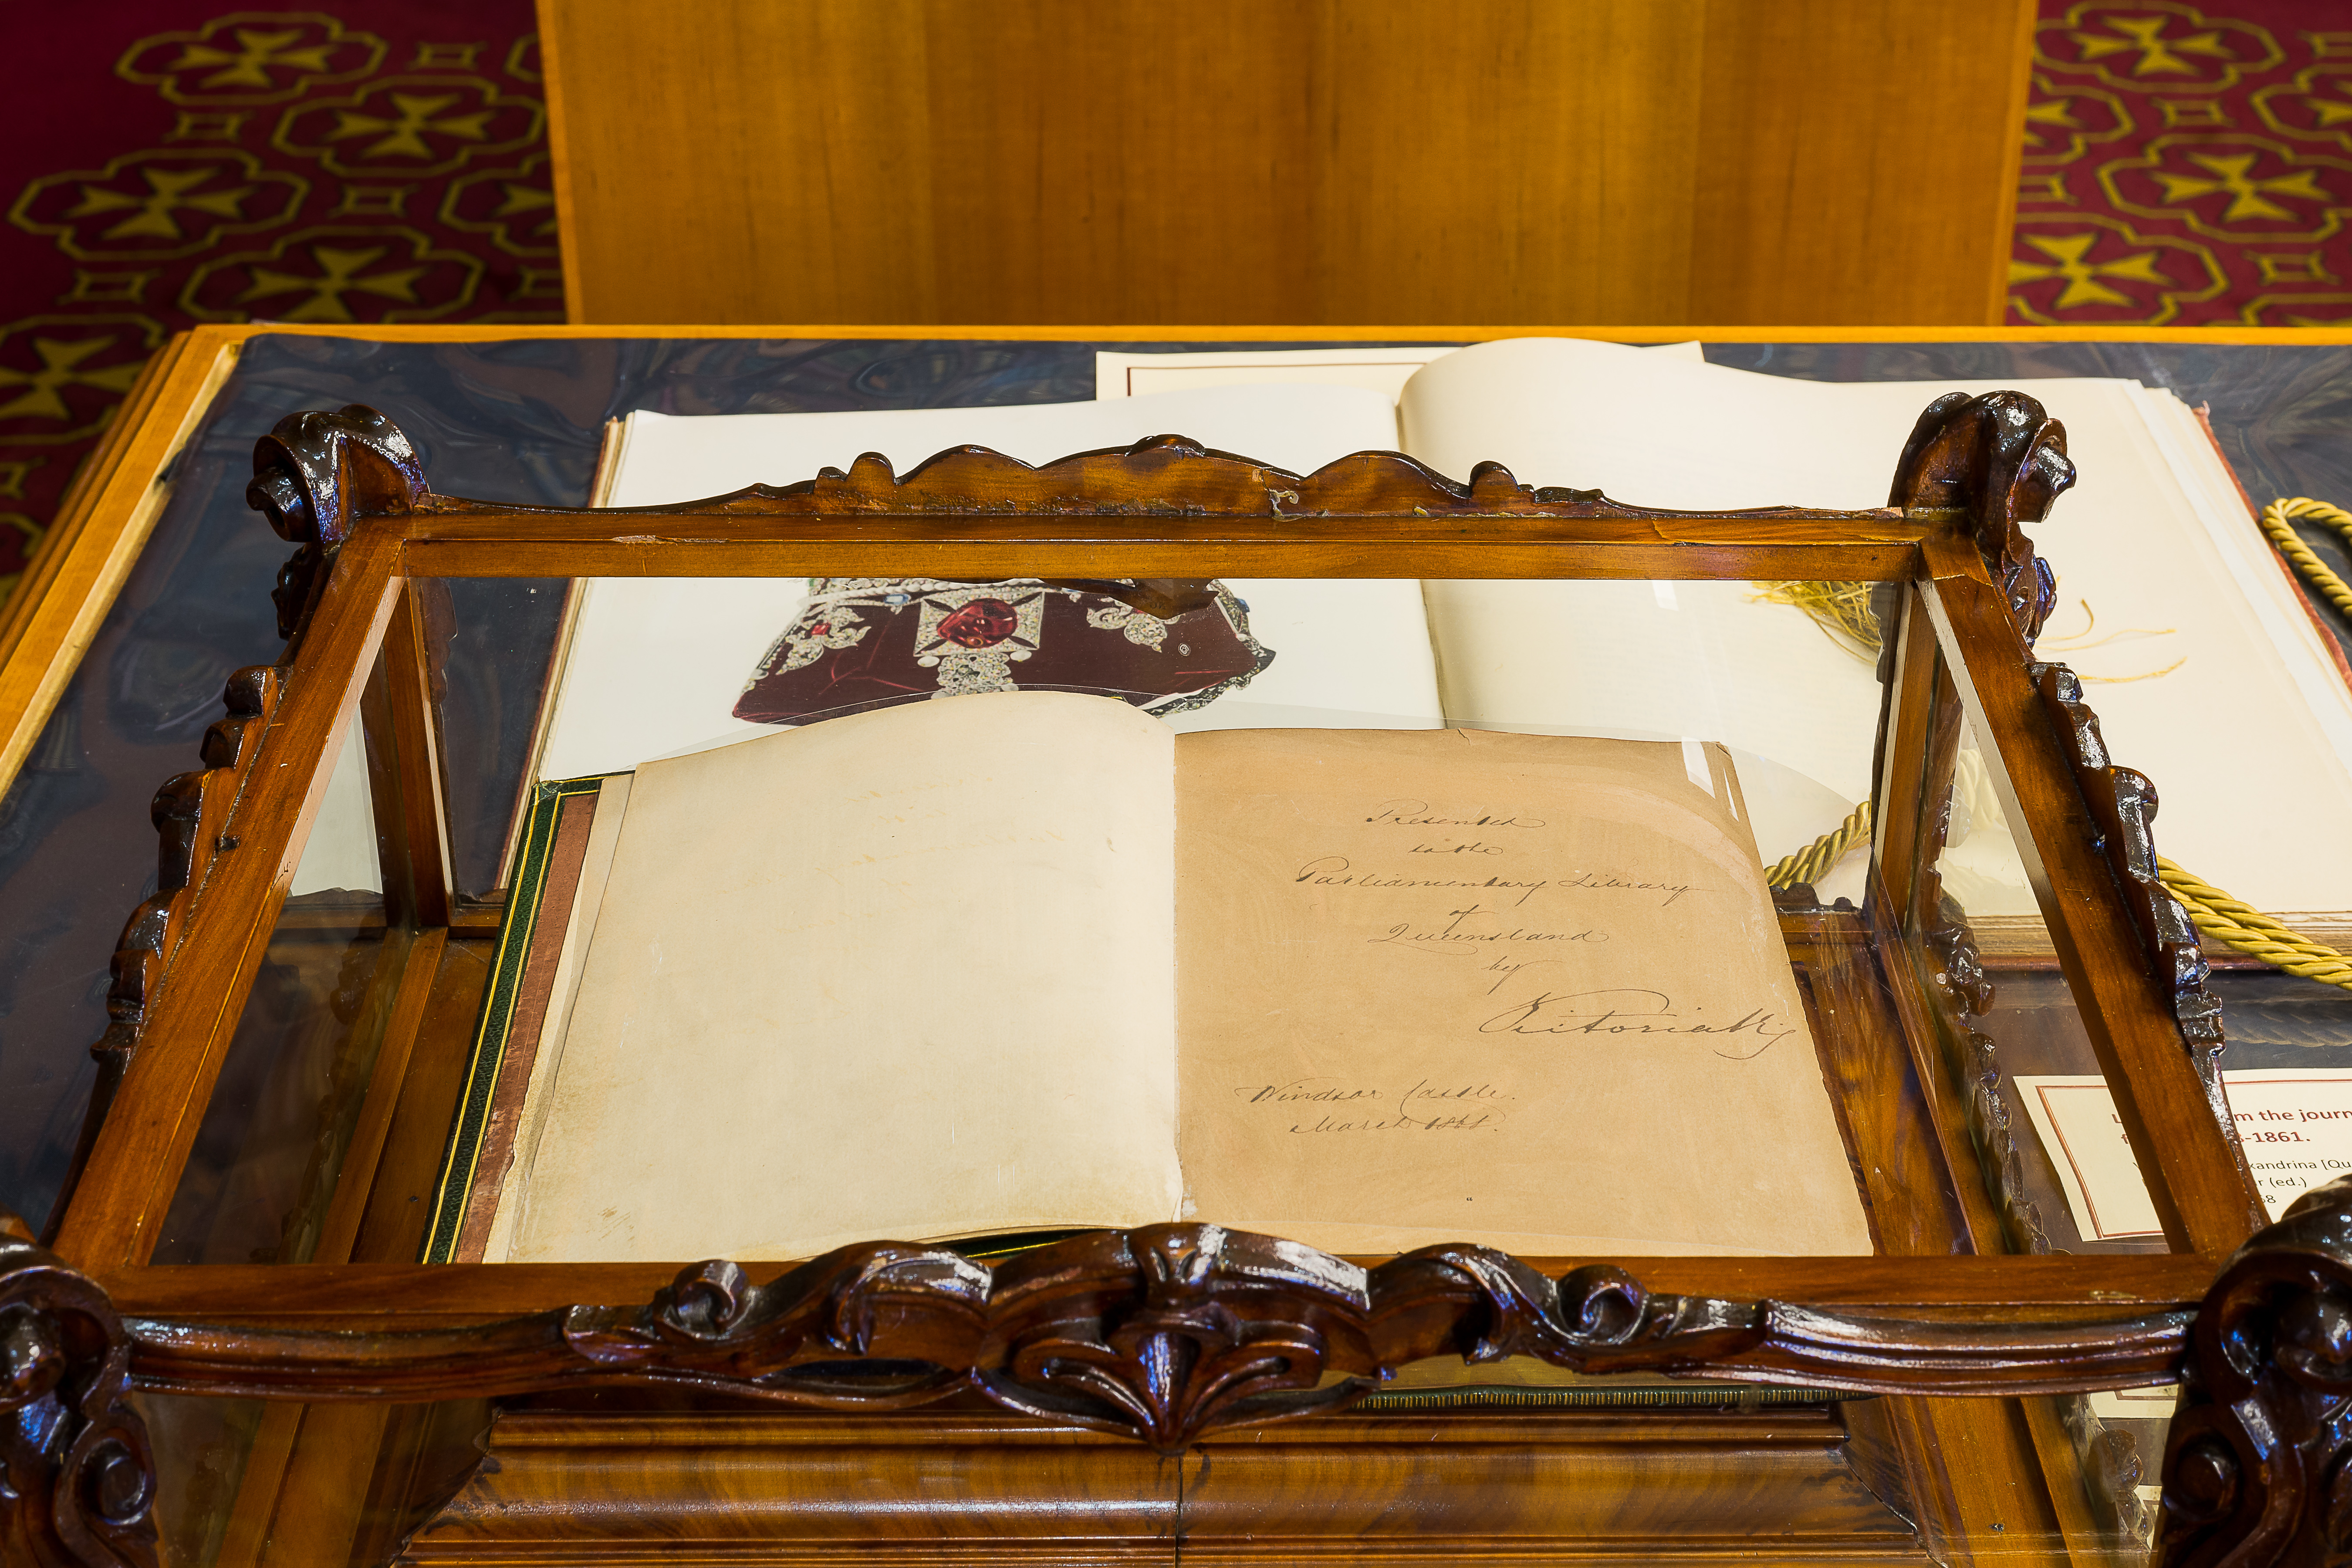 Presented
to the
Parliamentary Library
of
Queensland
by
Victoria R
Windsor Castle.
March 1868.
m the journ
-1861.
xandrina [Qu
r (ed.)
68